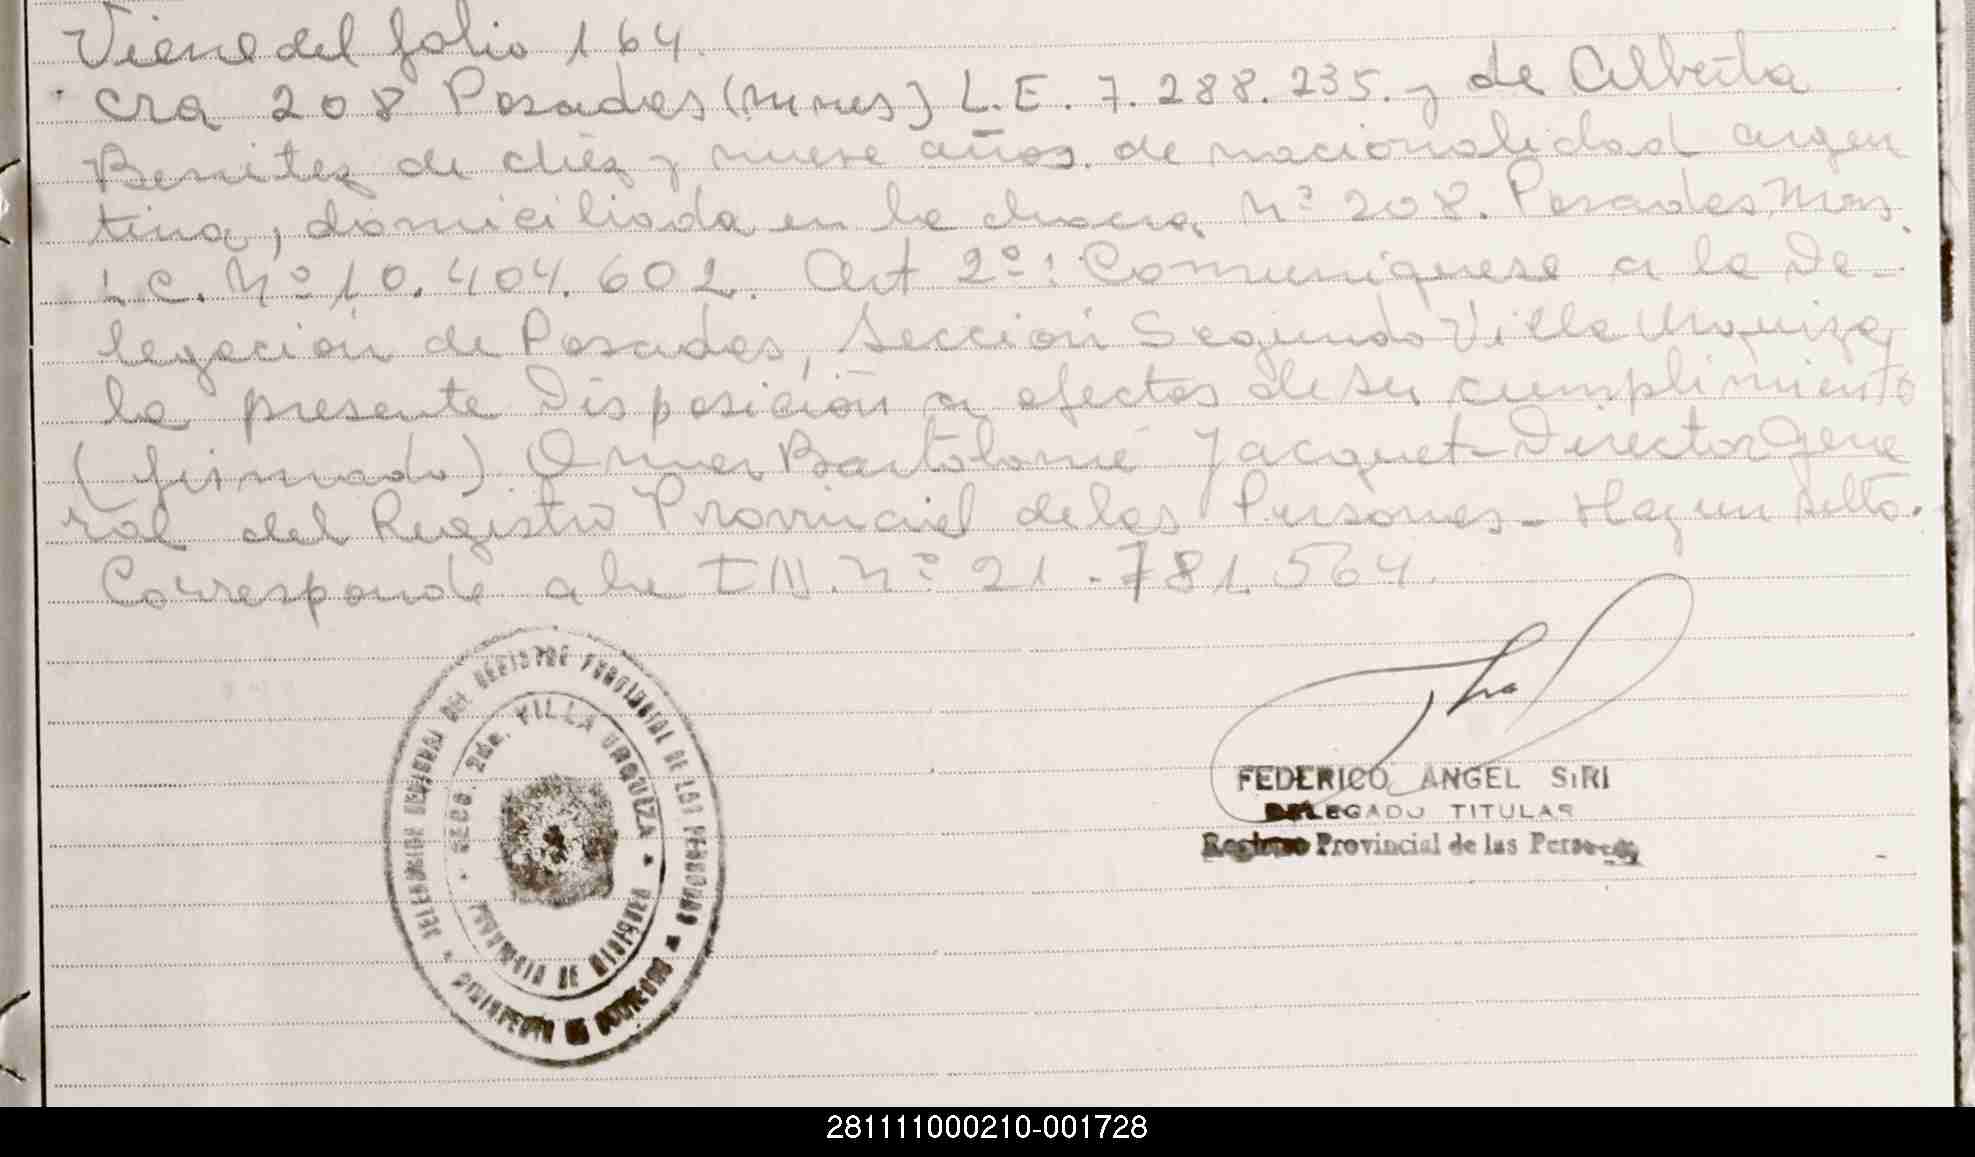 Viene del folio 164.
cra 208 Posadas (Mnes) L.E. 7.288.235. y de Alberta
Benitez de diez y nueve años de nacionalidad argen
tina, domiciliada en la chacra Nº 208. Posadas, Mnes.
L.C. Nº 10.404.602. Art 2º: Comuniquese a la De-
legación de Posadas, Sección Segunda Villa Urquiza,
la presente Disposición a efectos de su cumplimiento
(firmado) Omar Bartolomé Jacquet - Director Gene
ral del Registro Provincial de las Personas - Hay un sello.
Corresponde a la I N. Nº 21.781.564.
DELEGACION DEL REGISTRO PROVINCIAL DE LAS PERSONAS
SECC. 2da. VILLA URQUIZA
PROVINCIA DE MISIONES
FEDERICO ANGEL SIRI
DELEGADO TITULAR
Registro Provincial de las Personas
281111000210-001728